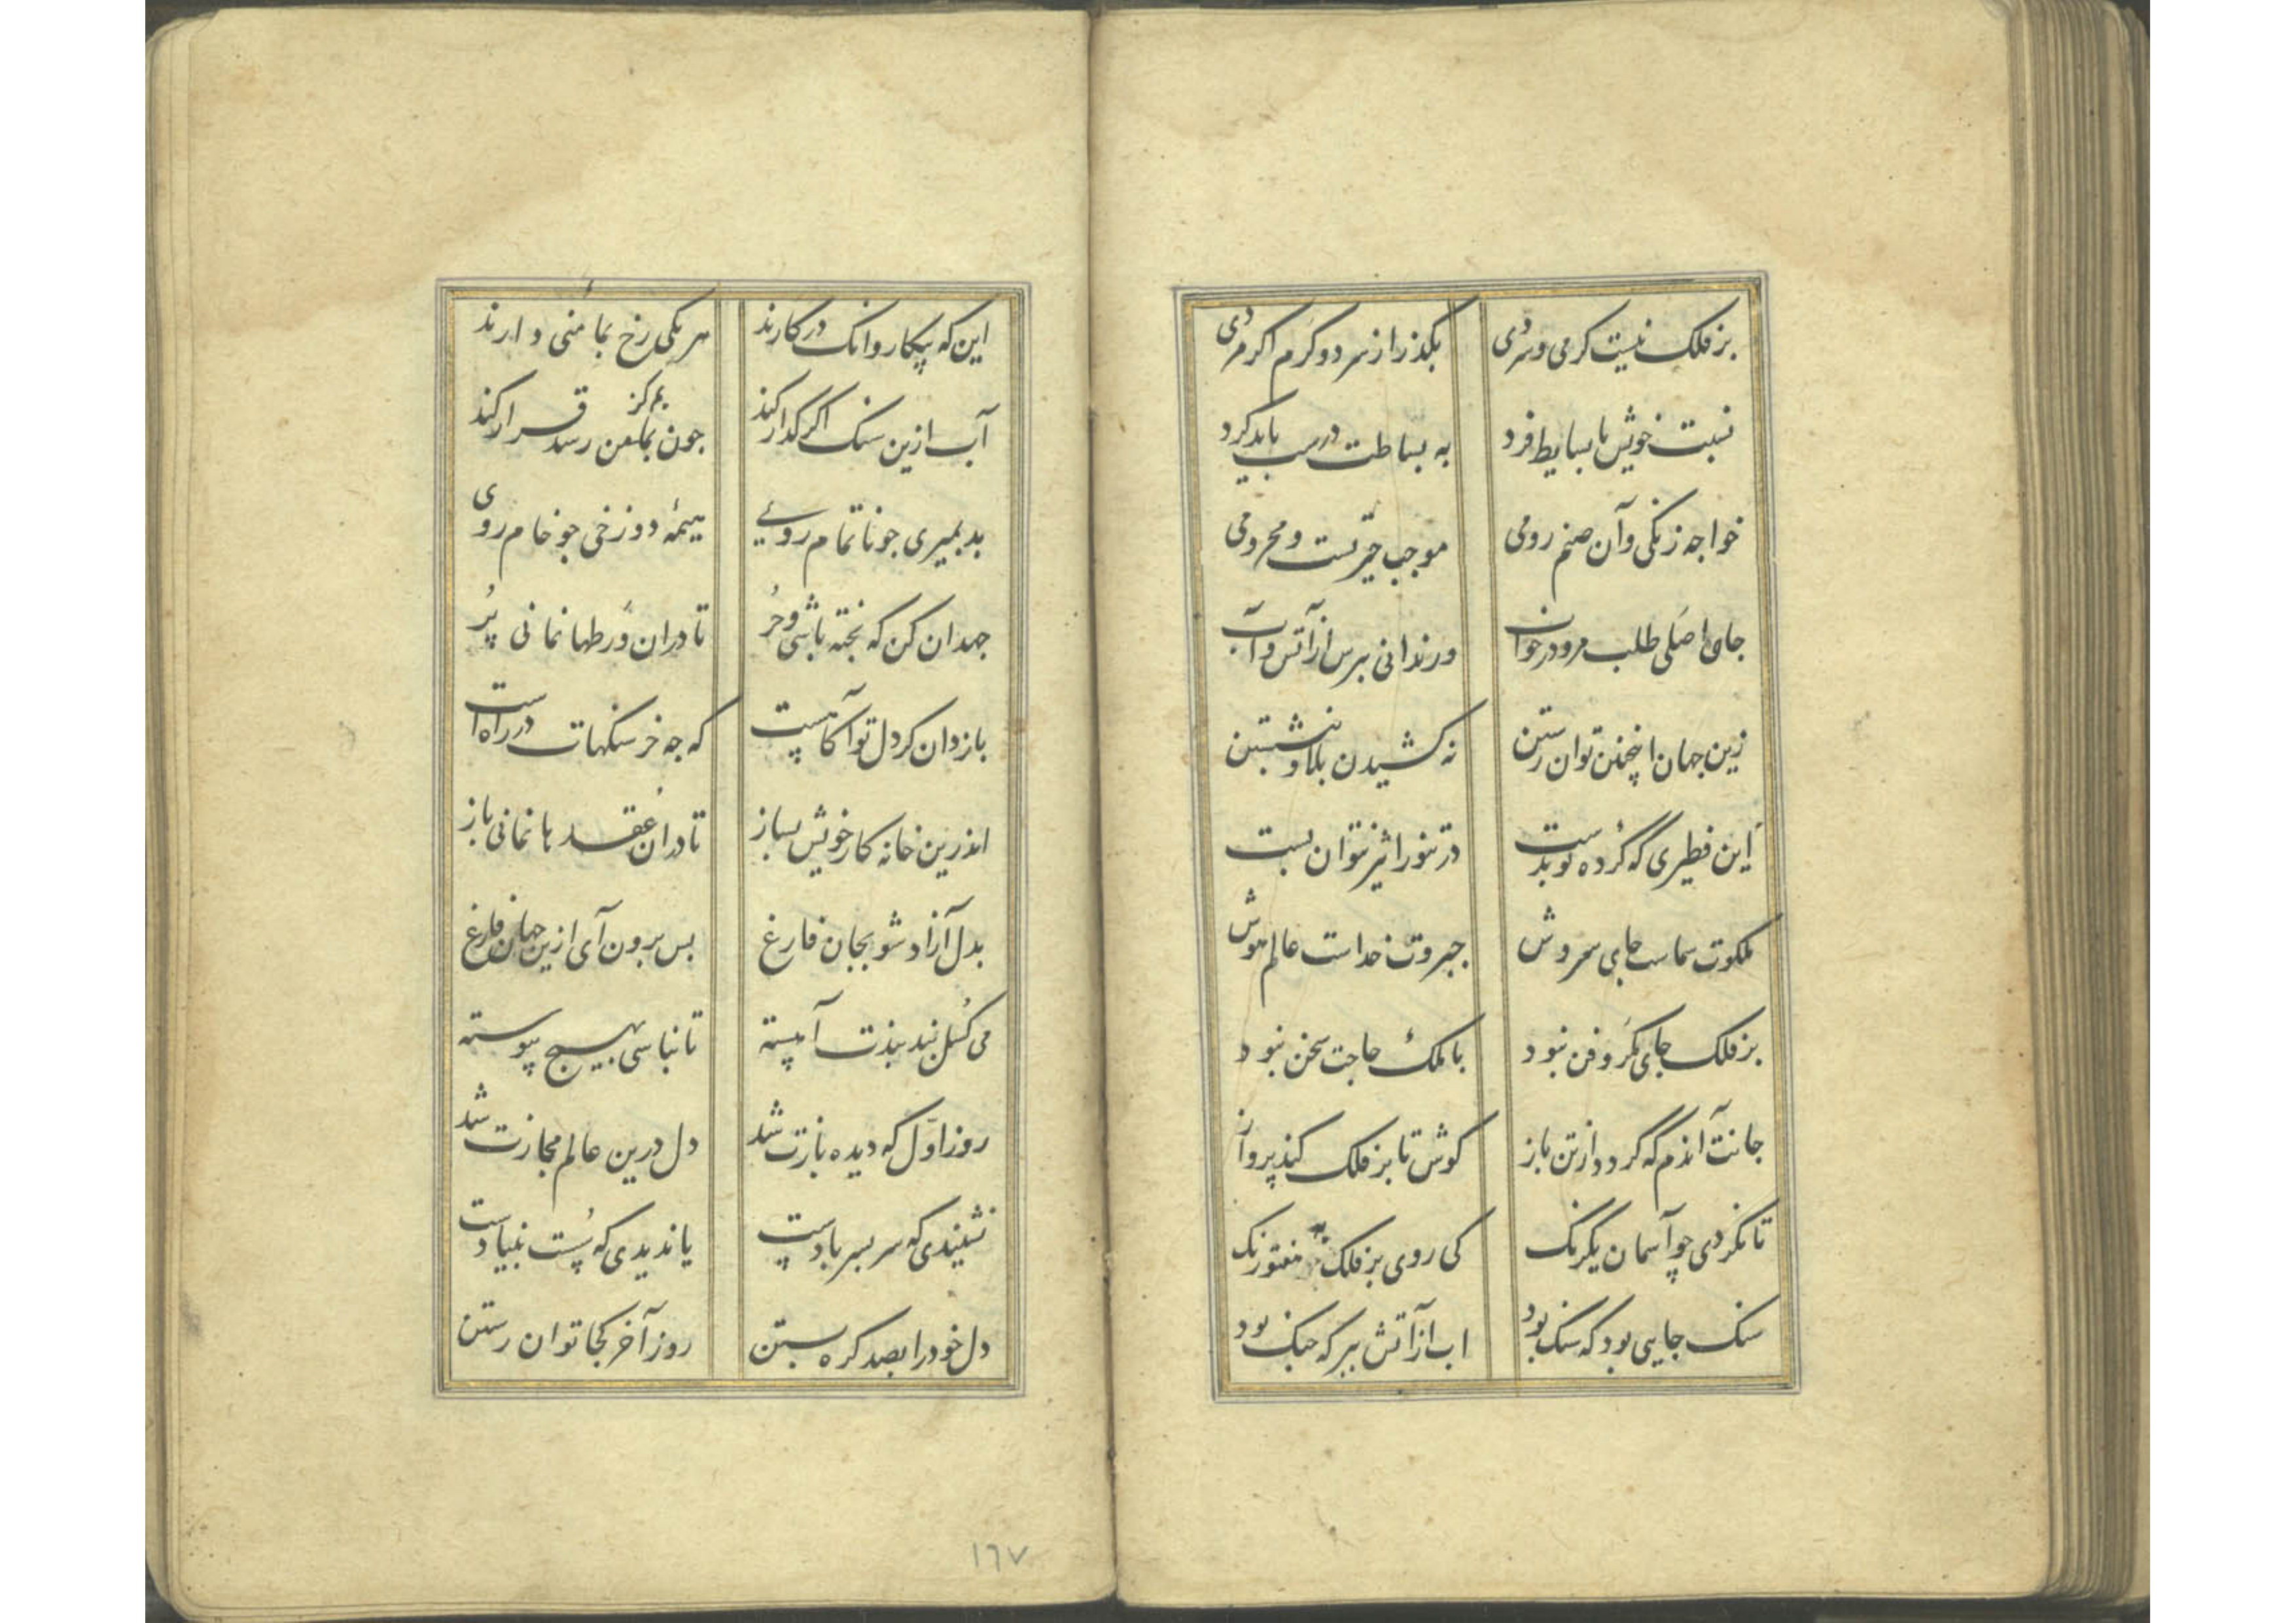 بر فلک نیست کرمی و سردی بگذر از سرد و گرم اگر مردی
نسبت خویش با بسایط فرد به بساطت درست باید کرد
خواجه زنگی و آن صنم رومی موجب حیرتست و محرومی
جای اصلی طلب مرو در خواب ور ندانی بپرس از آتش و آب
زین جهان اینچنین توان رستن نه کشیدن بلا و نشستن
این فطیری که کرده تو بدست در تنور اثیر نتوان بست
ملکوت سماست جای سروش جبروت خداست عالم هوش
بر فلک جای مکر و فن نبود با ملک حاجت سخن نبود
جانت آندم که گردد از تن باز کوش تا بر فلک کند پرواز
تا نگردی چو آسمان یکرنگ کی روی بر فلک
سنگ جایی بود که سنگ بود اب از آتش ببر که جنگ بود
این که پیکار و آنک در کارند هر یکی رخ بمأمنی دارند
آب ازین سنگ اگر گذار کند چون بمرکز رسد قرار کند
بد بمیری جو ناتمام روی هیمهٔ دوزخی جو خام روی
جهد آن کن که پخته باشی و حُر تا در ان ورطها نمانی پُر
باز دان کر دل تو آگاهست که جه خرسنگهات در راه است
اندرین خانه کار خویش بساز تا در ان عقدها نمانی باز
بدل آزاد شو بجان فارغ بس برون آی ازین جهان فارغ
می گسل بند بندت آهسته تا نباشی بهیچ پیوسته
روز اول که دیده بازت شد دل درین عالم مجازت شد
نشنیدی که سر بسر بادست یا ندیدی که سُست بنیادست
دل خود را بصد کره بستن روز آخر کجا توان رستن
١٦٧